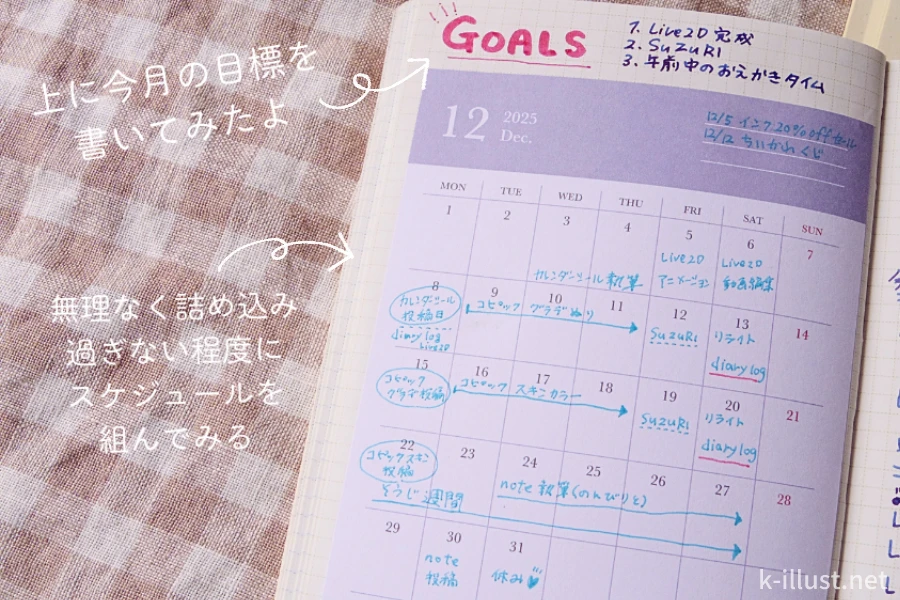 上に今月の目標を
書いてみたよ
無理なく詰め込み
過ぎない程度に
スケジュールを
組んでみる
GOALS
1. Live2D 完成
2. SuZuRI
3. 午前中のおえかきタイム
12
2025
Dec.
12/5 インク20%offセール
12/12 ちいかわくじ
MON TUE WED THU FRI SAT SUN
1 2 3 4 5 6 7
カレンダーツール執筆
Live2D
アニメーション
Live2D
動画編集
8 9 10 11 12 13 14
カレンダーツール
投稿日
diary log
Live2D
コピック グラデぬり
SuZuRI
リライト
diary log
15 16 17 18 19 20 21
コピック
グラデ投稿
コピック スキンカラー
SuZuRI
リライト
diary log
22 23 24 25 26 27 28
コピックスキン
投稿
そうじ週間
note 執筆(のんびりと)
29 30 31
note
投稿
休み
k-illust.net